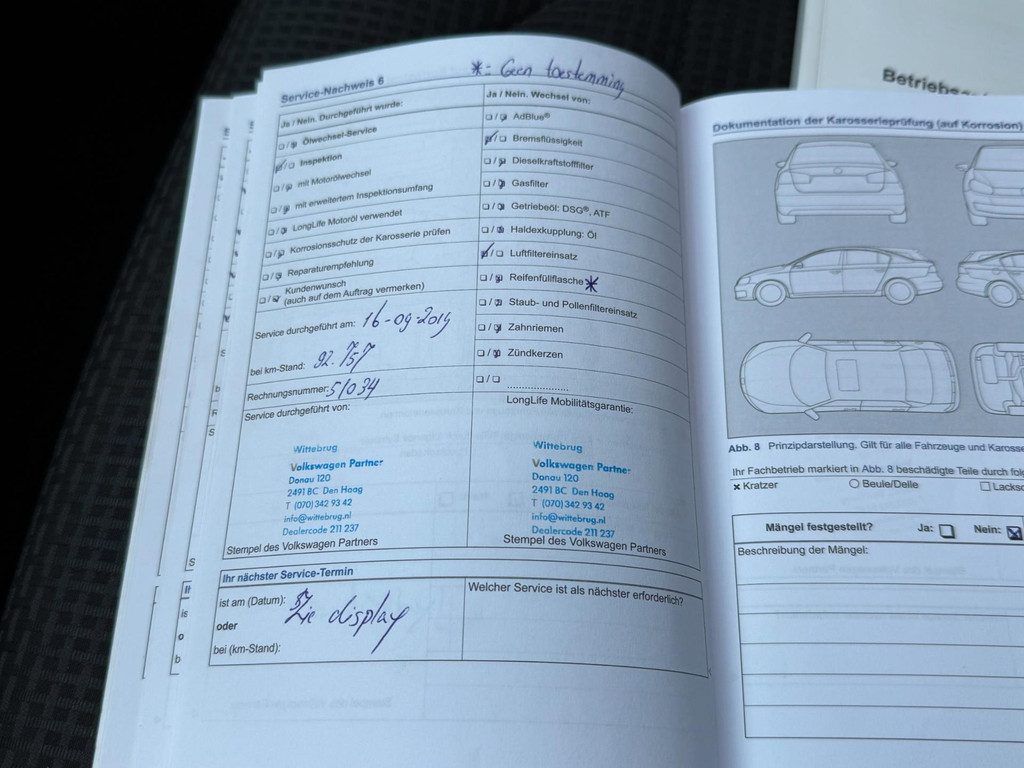 Betriebs
*= Geen toestemming
Service-Nachweis 6
Ja / Nein. Durchgeführt wurde:
Ölwechsel-Service
Inspektion
mit Motorölwechsel
mit erweitertem Inspektionsumfang
LongLife Motoröl verwendet
Korrosionsschutz der Karosserie prüfen
Reparaturempfehlung
Kundenwunsch
(auch auf dem Auftrag vermerken)
Service durchgeführt am: 16-09-2019
bei km-Stand: 92.757
Rechnungsnummer: 51034
Service durchgeführt von:
Wittebrug
Volkswagen Partner
Donau 120
2491 BC Den Haag
T (070) 342 93 42
info@wittebrug.nl
Dealercode 211 237
Stempel des Volkswagen Partners
Ja / Nein. Wechsel von:
AdBlue®
Bremsflüssigkeit
Dieselkraftstofffilter
Gasfilter
Getriebeöl: DSG®, ATF
Haldexkupplung: Öl
Luftfiltereinsatz
Reifenfüllflasche *
Staub- und Pollenfiltereinsatz
Zahnriemen
Zündkerzen
LongLife Mobilitätsgarantie:
Wittebrug
Volkswagen Partner
Donau 120
2491 BC Den Haag
T (070) 342 93 42
info@wittebrug.nl
Dealercode 211 237
Stempel des Volkswagen Partners
Ihr nächster Service-Termin
ist am (Datum): Zie display
oder
bei (km-Stand):
Welcher Service ist als nächster erforderlich?
Dokumentation der Karosserieprüfung (auf Korrosion)
Abb. 8 Prinzipdarstellung. Gilt für alle Fahrzeuge und Karosse
Ihr Fachbetrieb markiert in Abb. 8 beschädigte Teile durch fol
× Kratzer
Beule/Delle
Lacksc
Mängel festgestellt? Ja: Nein:
Beschreibung der Mängel: